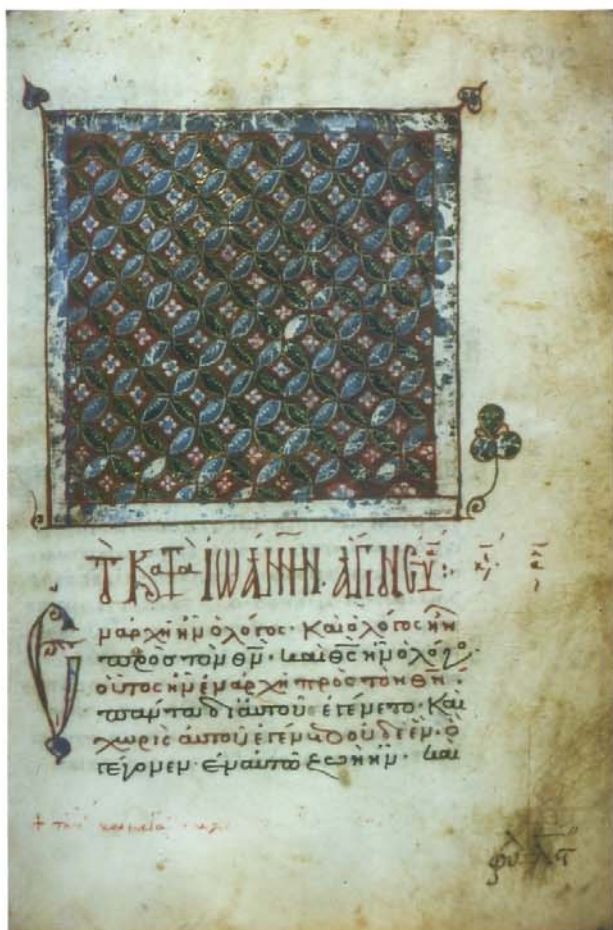 Τὸ Κατὰ ἸΩΆΝΝΗΝ ἍΓΙΟΝ ΕΥΑ
Ἐν ἀρχῆ ἦν ὁ λόγος· Καὶ ὁ λόγος ἦν
πρὸς τὸν θ̅ν̅· καὶ θ̅ς̅ ἦν ὁ λόγο
οὗτος ἦν ἐν ἀρχῆ πρὸς τὸν θ̅ν̅·
πάντα δι αὐτοῦ ἐγένετο· Καὶ
χωρὶς αὐτοῦ ἐγένετο οὐδὲ ἕν· ὃ
γέγονεν· ἐν αὐτῶ ζωὴ ἦν· καὶ